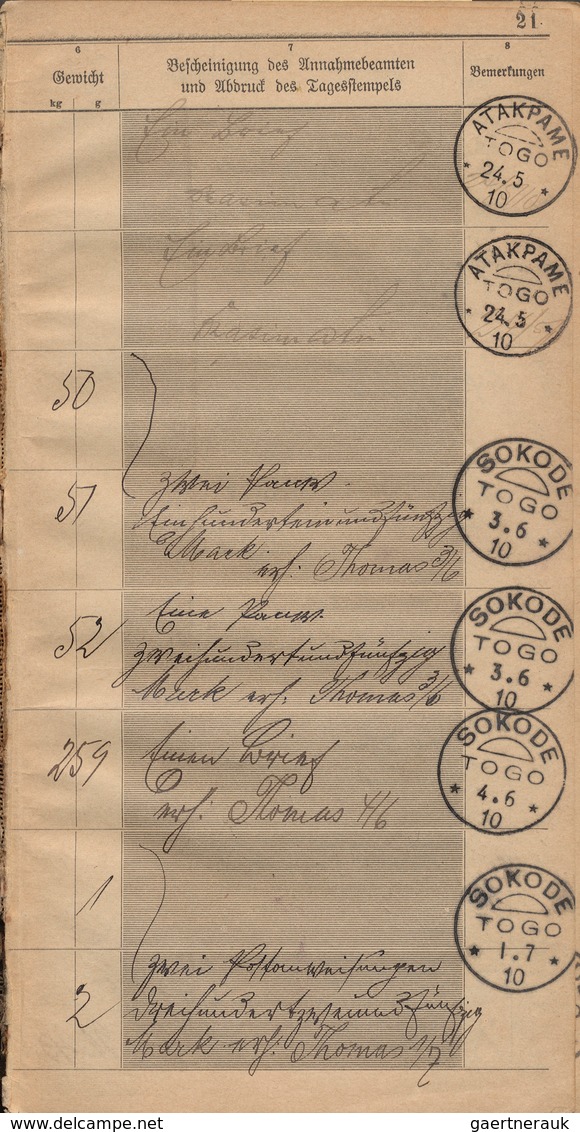 21.
6
7
8
Gewicht
Bescheinigung des Annahmebeamten
und Abdruck des Tagesstempels
Bemerkungen
kg g
Ein Brief
ATAKPAME
TOGO
24.5
10
Ein Brief
ATAKPAME
TOGO
24.5
10
50
51
zwei
Einhunderteinundfünfzig
Mark
erh: Thomas 3/6
SOKODE
TOGO
3.6
10
52
Eine
zweihundertundfünfzig
Mark erh. Thomas 3/6
SOKODE
TOGO
3.6
10
259
Einen Brief
erh: Thomas 4/6
SOKODE
TOGO
4.6
10
1
2
zwei Postanweisungen
Dreihundertzweiundfünfzig
Mark erh: Thomas 1/7
SOKODE
TOGO
1.7
10
gaertnerauk